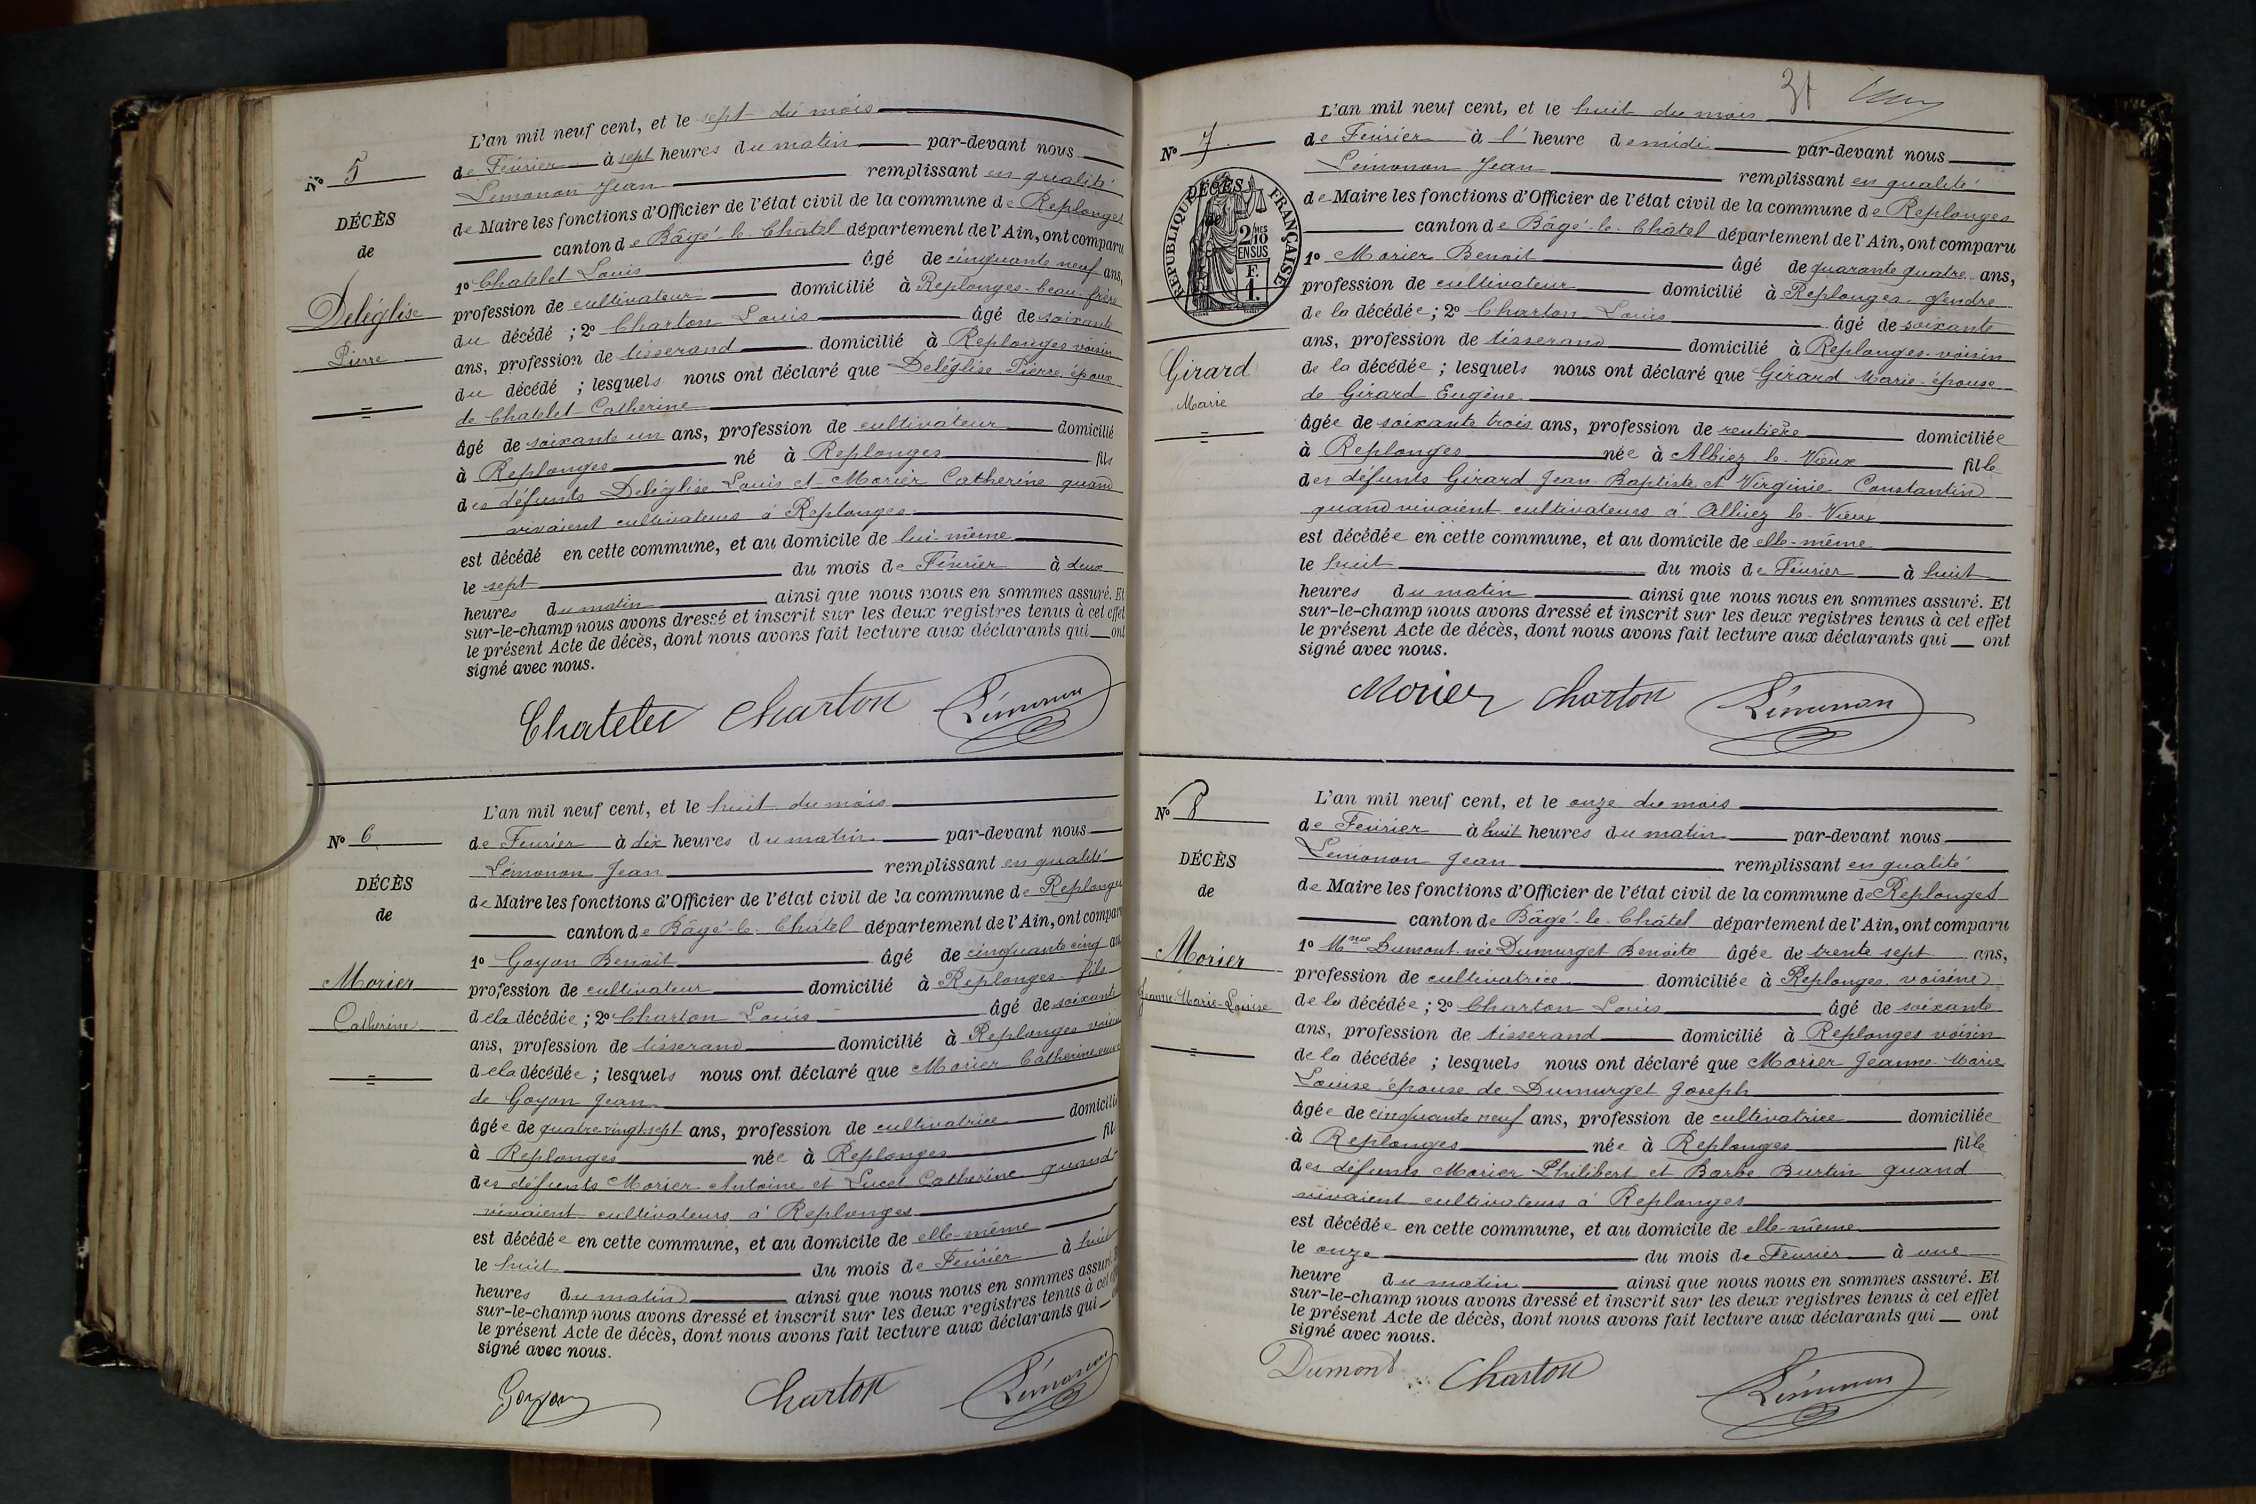 L'an mil neuf cent, et le sept du mois
Nº 5
de Février à sept heures du matin par-devant nous
Lémonon Jean remplissant en qualité
DÉCÈS
de Maire les fonctions d'Officier de l'état civil de la commune de Replonges
de
canton de Bâgé-le-Châtel département de l'Ain, ont comparu
1º Chatelet Louis âgé de cinquante neuf ans,
Deléglise
profession de cultivateur domicilié à Replonges beau-frère
du décédé ; 2º Charton Louis âgé de soixante
Pierre
ans, profession de tisserand domicilié à Replonges voisin
du décédé ; lesquels nous ont déclaré que Deléglise Pierre époux
de Chatelet Catherine
âgé de soixante un ans, profession de cultivateur domicilié
à Replonges né à Replonges fils
des défunts Deléglise Louis et Morier Catherine quand
vivaient cultivateurs à Replonges
est décédé en cette commune, et au domicile de lui-même
le sept du mois de Février à deux
heures du matin ainsi que nous nous en sommes assuré. Et
sur-le-champ nous avons dressé et inscrit sur les deux registres tenus à cet effet
le présent Acte de décès, dont nous avons fait lecture aux déclarants qui ont
signé avec nous.
Chatelet Charton Lémonon
L'an mil neuf cent, et le huit du mois
Nº 6
de Février à dix heures du matin par-devant nous
Lémonon Jean remplissant en qualité
DÉCÈS
de Maire les fonctions d'Officier de l'état civil de la commune de Replonges
de
canton de Bâgé-le-Châtel département de l'Ain, ont comparu
1º Goyon Benoit âgé de cinquante cinq ans
Morier
profession de cultivateur domicilié à Replonges fils
de la décédée ; 2º Charton Louis âgé de soixante
Catherine
ans, profession de tisserand domicilié à Replonges voisin
de la décédée ; lesquels nous ont déclaré que Morier Catherine veuve
de Goyon Jean
âgée de quatre vingt sept ans, profession de cultivatrice domicilié
à Replonges née à Replonges fil
des défunts Morier Antoine et Lucet Catherine quand
vivaient cultivateurs à Replonges
est décédée en cette commune, et au domicile de elle-même
le huit du mois de Février à huit
heures du matin ainsi que nous nous en sommes assuré.
sur-le-champ nous avons dressé et inscrit sur les deux registres tenus à cet
le présent Acte de décès, dont nous avons fait lecture aux déclarants qui
signé avec nous.
Goyon Charton Lémonon
31
L'an mil neuf cent, et le huit du mois
Nº 7
de Février à l' heure de midi par-devant nous
Lémonon Jean remplissant en qualité
DÉCÈS
RÉPUBLIQUE FRANÇAISE
2/10 EN SUS
F. 1.
de Maire les fonctions d'Officier de l'état civil de la commune de Replonges
canton de Bâgé-le-Châtel département de l'Ain, ont comparu
1º Morier Benoit âgé de quarante quatre ans,
profession de cultivateur domicilié à Replonges gendre
de la décédée ; 2º Charton Louis âgé de soixante
ans, profession de tisserand domicilié à Replonges voisin
Girard
de la décédée ; lesquels nous ont déclaré que Girard Marie épouse
Marie
de Girard Eugène
âgée de soixante trois ans, profession de rentière domiciliée
à Replonges née à Albiez le Vieux fille
des défunts Girard Jean-Baptiste et Virginie Constantin
quand vivaient cultivateurs à Albiez le Vieux
est décédée en cette commune, et au domicile de elle-même
le huit du mois de Février à huit
heures du matin ainsi que nous nous en sommes assuré. Et
sur-le-champ nous avons dressé et inscrit sur les deux registres tenus à cet effet
le présent Acte de décès, dont nous avons fait lecture aux déclarants qui ont
signé avec nous.
Morier Charton Lémonon
L'an mil neuf cent, et le onze du mois
Nº 8
de Février à huit heures du matin par-devant nous
Lémonon Jean remplissant en qualité
DÉCÈS
de Maire les fonctions d'Officier de l'état civil de la commune de Replonges
de
canton de Bâgé-le-Châtel département de l'Ain, ont comparu
1º Mme Dumont née Dumurget Benoite âgée de trente sept ans,
Morier
profession de cultivatrice domiciliée à Replonges voisine
Jeanne-Marie-Louise
de la décédée ; 2º Charton Louis âgé de soixante
ans, profession de tisserand domicilié à Replonges voisin
de la décédée ; lesquels nous ont déclaré que Morier Jeanne-Marie
Louise épouse de Dumurget Joseph
âgée de cinquante neuf ans, profession de cultivatrice domiciliée
à Replonges née à Replonges fille
des défunts Morier Philibert et Barbe Burtin quand
vivaient cultivateurs à Replonges
est décédée en cette commune, et au domicile de elle-même
le onze du mois de Février à une
heure du matin ainsi que nous nous en sommes assuré. Et
sur-le-champ nous avons dressé et inscrit sur les deux registres tenus à cet effet
le présent Acte de décès, dont nous avons fait lecture aux déclarants qui ont
signé avec nous.
Dumont Charton Lémonon